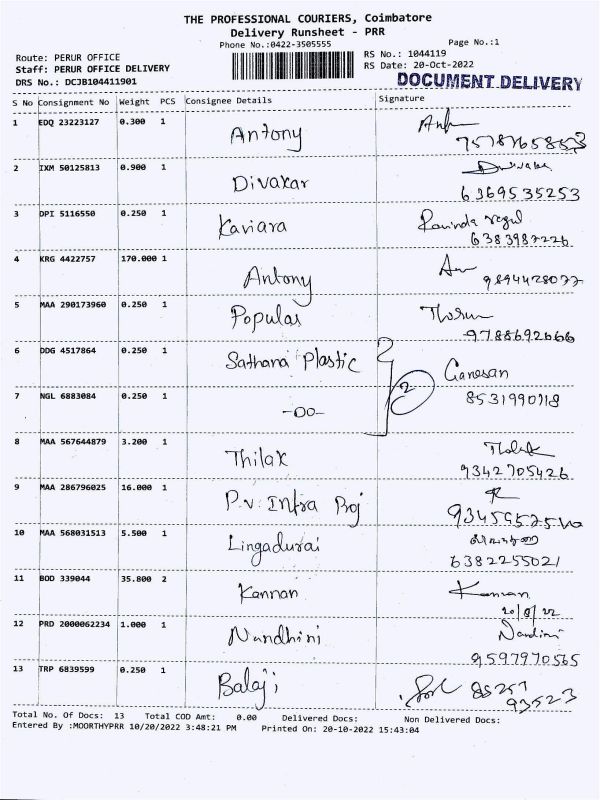 THE PROFESSIONAL COURIERS, Coimbatore
Delivery Runsheet - PRR
Phone No.:0422-3505555
Page No.:1
Route: PERUR OFFICE
RS No.: 1044119
Staff: PERUR OFFICE DELIVERY
RS Date: 20-Oct-2022
DRS No.: DCJB104411901
DOCUMENT DELIVERY
S No Consignment No Weight PCS Consignee Details Signature
1 EDQ 23223127 0.300 1 Antony
2 IXM 50125813 0.900 1 Divakar
6369535253
3 DPI 5116550 0.250 1 Kaviara
6383987226
4 KRG 4422757 170.000 1 Antony
9894428077
5 MAA 290173960 0.250 1 Popular
9788692666
6 DDG 4517864 0.250 1 Sathana Plastic 2 Ganesan
7 NGL 6883084 0.250 1 -DO- 8531990118
8 MAA 567644879 3.200 1 Thilak
9342705426
9 MAA 286796025 16.000 1 P.V. Infra Proj
10 MAA 568031513 5.500 1 Lingadurai
6382255021
11 BOD 339044 35.800 2 Kannan Kannan
12 PRD 2000062234 1.000 1 Nandhini Nandini
9597970565
13 TRP 6839599 0.250 1 Balaji 85257
93523
Total No. Of Docs: 13 Total COD Amt: 0.00 Delivered Docs: Non Delivered Docs:
Entered By :MOORTHYPRR 10/20/2022 3:48:21 PM Printed On: 20-10-2022 15:43:04